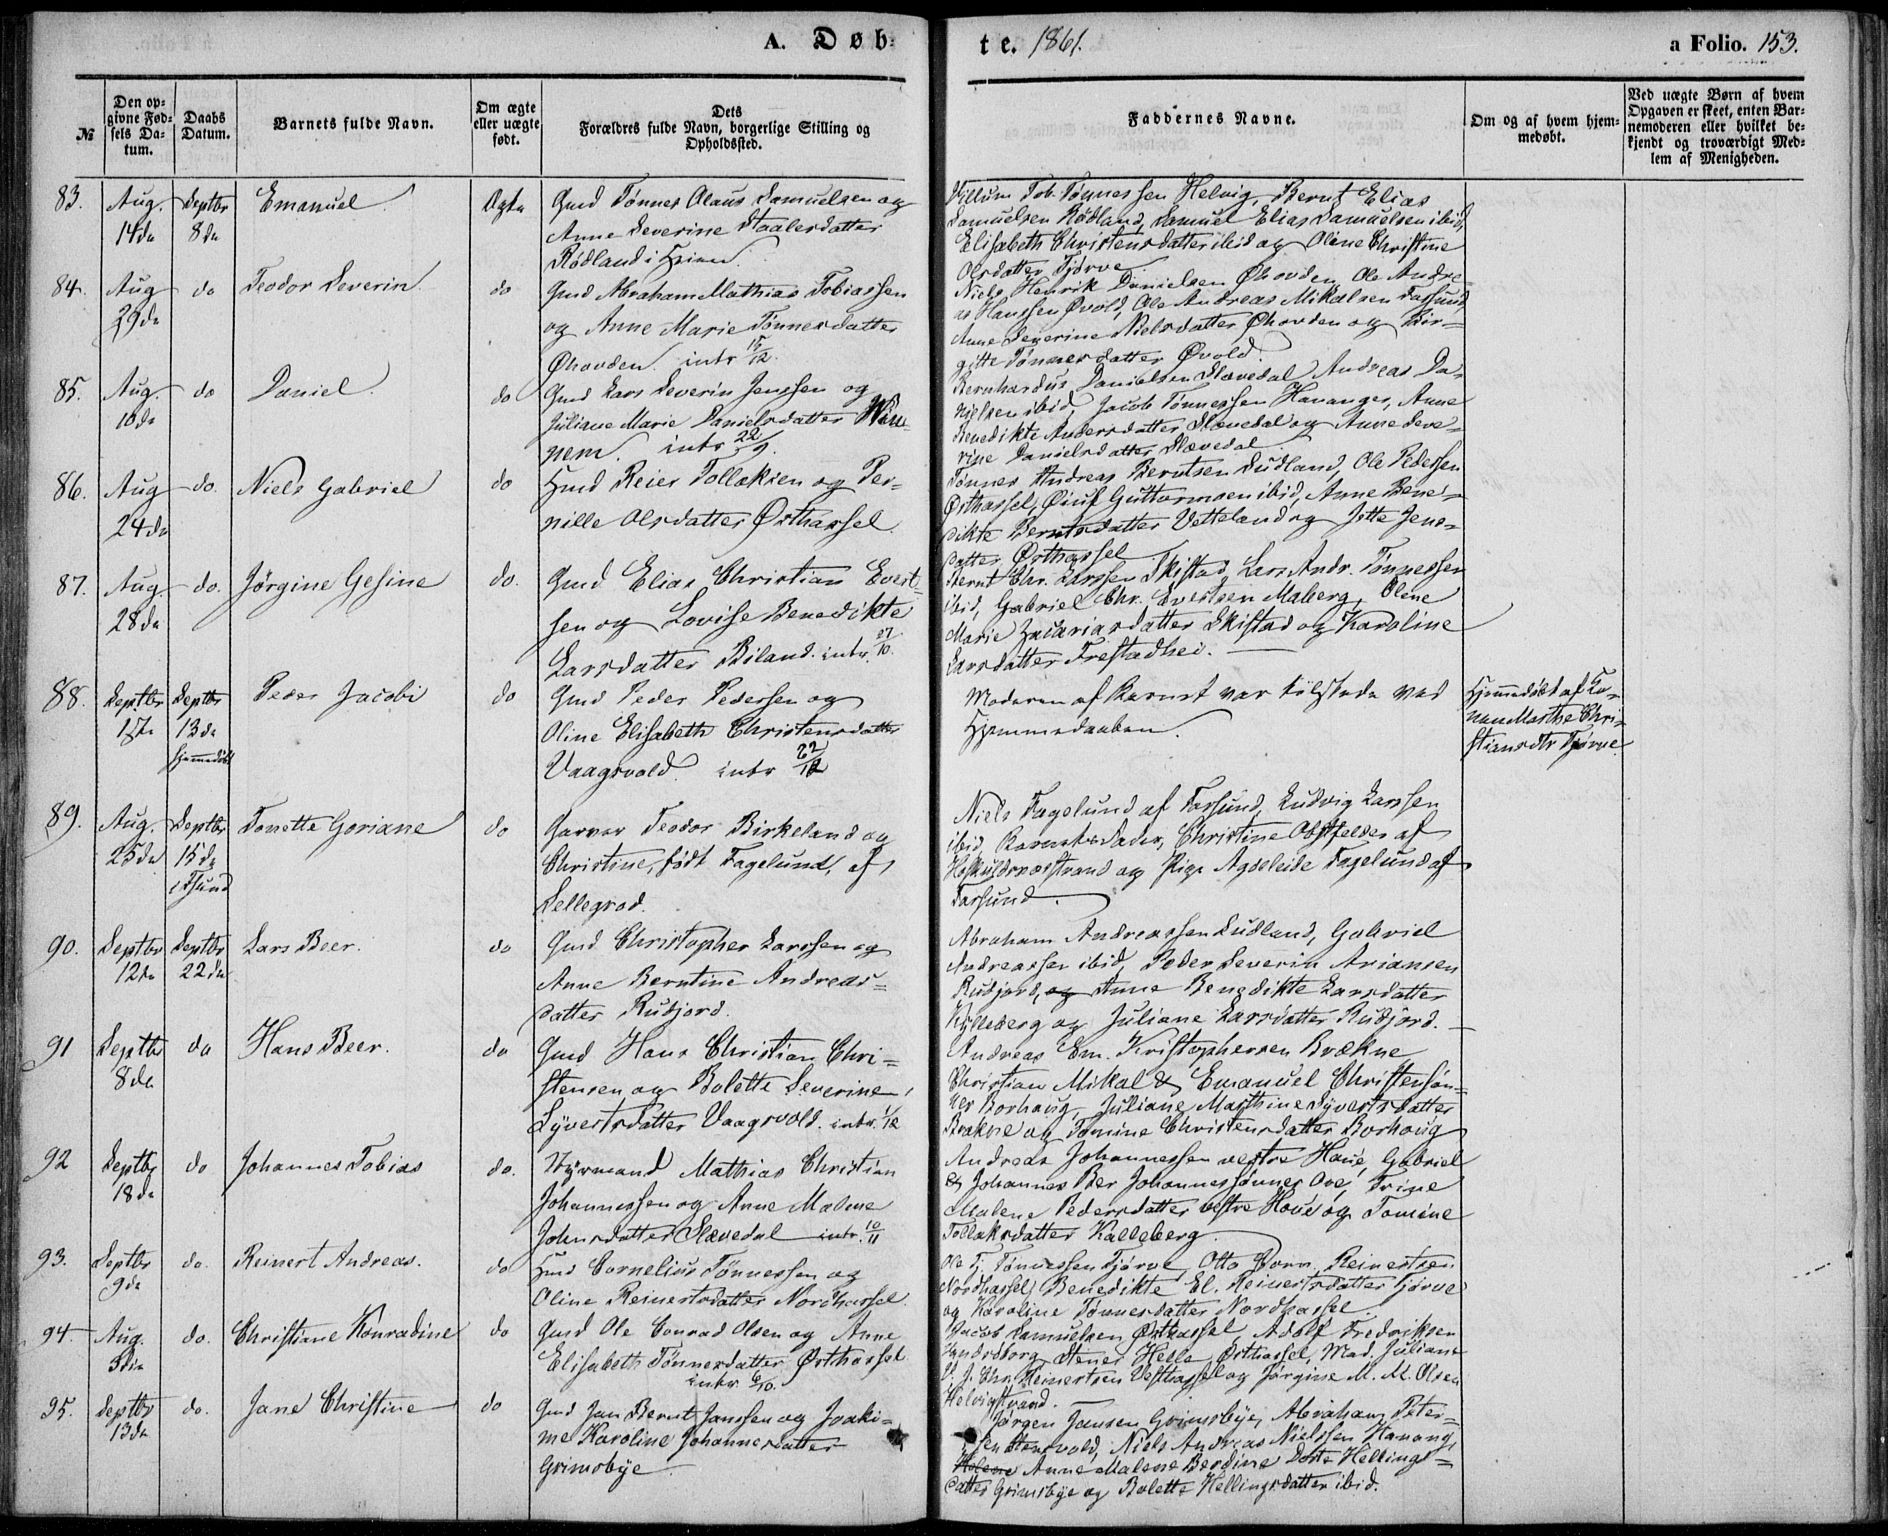 A. Døb-
te. 1861.
a Folio. 153.
№
Den op-
givne Fød-
sels Da-
tum.
Daabs
Datum.
Barnets fulde Navn.
Om ægte
eller uægte
født.
Dets
Forældres fulde Navn, borgerlige Stilling og
Opholdssted.
Faddernes Navne.
Om og af hvem hjem-
medøbt.
Ved uægte Børn af hvem
Opgaven er skeet, enten Bar-
nemoderen eller hvilket be-
kjendt og troværdigt Med-
lem af Menigheden.
83. Aug. 14de Septbr 8de Emanuel Ægte
Gmd Tønnes Olaus Samuelsen og
Anne Severine Staalesdatter
Rødland i
Villum Tob. Tønnessen Helvig, Bernt Elias
Samuelsen Rødland, Samuel Elias Samuelsen ibid,
Elisabeth Christensdatter ibid og Oline Christine
Olsdatter Tjørve
84. Aug 29de do Teodor Severin do
Gmd Abraham Mathias Tobiassen
og Anne Marie Tønnesdatter
Øhovden. intr 15/12.
Niels Henrik Danielsen Øhovden, Ole Andre-
as Hanssen Øvold, Ole Andreas Mikalsen Farsund,
Anne Severine Nielsdatter Øhovden og Bir-
gitte Tønnesdatter Øvold.
85. Aug. 10de do Daniel do
Gmd Lars Severin Jenssen og
Juliane Marie Danielsdatter
nem. intr 22/9.
Bernhardus Danielsen Slævedal, Andreas Da-
nielsen ibid, Jacob Tønnessen Havanger, Anne
Benedikte Andersdatter Slævedal og Anne Seve-
rine Danielsdatter Slævedal
86. Aug 24de do. Niels Gabriel do
Hmd Reier Tollaksen og Per-
nille Olsdatter Østhassel
Tønnes Andreas Berntsen Sudland, Ole Pedersen
Østhassel, Guttormsen ibid, Anne Bene-
dikte Berntsdatter Vetteland og Jette Jens-
datter Østhassel
87. Aug. 28de do. Jørgine Gesine do.
Gmd Elias Christian Evert-
sen og Lovise Benedikte
Larsdatter Biland. intr. 27/10.
Bernt Chr. Larssen Skistad, Lars Andr. Tønnessen
ibid, Gabriel Chr. Evertsen Maberg, Oline
Marie Zacariasdatter Skistad og Karoline
Larsdatter Frestadhei.
88. Septbr Septbr 13de hjemmedøbt Peder Jacobi do
Gmd Peder Pedersen og
Oline Elisabeth Christensdatter
Vaagsvold. intr 22/12
Moderen af Barnet var tilstede ved
Hjemmedaaben.
Hjemmedøbt af Ko-
nen Marthe Chri-
stiansdtr Tjørve
89. Aug. 25de Septbr 15de i Fsund Tonette Goriane do
Garver Teodor Birkeland og
Christine, født Fagelund, af
Sellegrod.
Niels Fagelund af Farsund, Ludvig Larssen
ibid, Barnets Fader, Christine Obstfelder af
Høskuldsnæsstrand og Pige Agdeleide Fagelund af
Farsund.
90. Septbr 12te Septbr 22de Lars Beer. do
Gmd Christopher Larssen og
Anne Berntine Andreas-
datter Rudjord.
Abraham Andreassen Sudland, Gabriel
Andreassen ibid, Peder Severin Ariansen
Rudjord, og Anne Benedikte Larsdatter
Kalleberg og Juliane Larsdatter Rudjord.
91 Septbr 8de do Hans Beer. do
Gmd Hans Christian Chri-
stensen og Bolette Severine
Syvertsdatter Vaagsvold. intr. 1/12
Andreas Em. Kristophersen Brækne
Christian Mikal & Emanuel Christensøn-
ner Borhaug, Juliane Marthine Syvertsdatter
Brækne og Tomine Christensdatter Borhaug
92 Septbr 18de do Johannes Tobias do.
Styrmand Mathias Christian
Johannessen og Anne Malene
Johnsdatter Slævedal intr. 10/11
Andreas Johannessen vestre Haue, Gabriel
& Johannes Ber Johannessønner Ore, Trine
Malene Pedersdatter vestre Houe og Tomine
Tollaksdatter Kalleberg
93. Septbr 9de do. Reinert Andreas. do
Hmd Cornelius Tønnessen og
Oline Reinertsdatter Nordhassel.
Ole T. Tønnessen Tjørve, Otto Reinertsen
Nordhassel, Benedikte El. Reinertsdatter Tjørve
og Karoline Tønnesdatter Nordhassel.
94. Aug. do. Christiane Konradine do
Gmd Ole Conrad Olsen og Anne
Elisabeth Tønnesdatter Østhassel
intr. 6/10.
Jacob Samuelsen Østhassel, Adolf Fredriksen
Stener Helle Østhassel, Mad. Juliane
Reinertsen Vesthassel og Jørgine M. M. Olsen
Helvigstrand.
95. Septbr 13de do. Jane Christine do
Gmd Jan Bernt Janssen og Joaki-
me Karoline Johannesdatter
Grimsbye
Jørgen Jansen Grimsbye, Abraham Peter-
sen Niels Andreas Nielssen Havang,
Anne Malene Berdine Dorte Hellings-
datter Grimsbye og Bolette Hellingsdatter ibid.